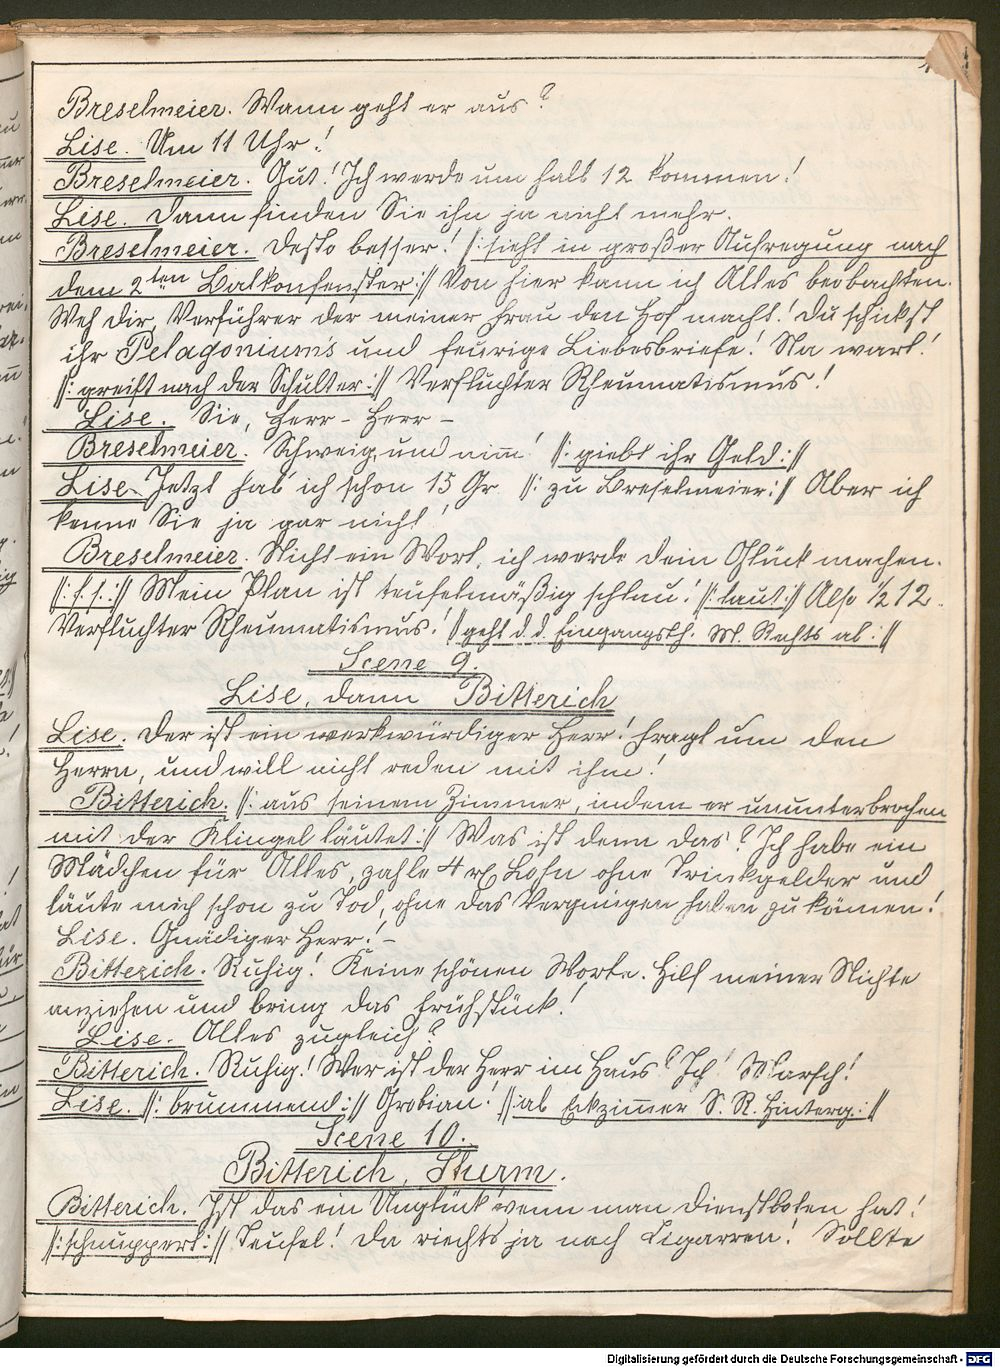 Breselmeier. Wann geht er aus?
Lise. Um 11 Uhr!
Breselmeier. Gut! Ich werde um halb 12 kommen!
Lise. Dann finden Sie ihn ja nicht mehr.
Breselmeier. Desto besser! /: sieht in großer Aufregung nach
dem 2ten Balkonfenster :/ Von hier kann ich Alles beobachten.
Weh dir, Verführer der meiner Frau den Hof macht! Du schickst
ihr Pelagonium's und feurige Liebesbriefe! Na wart!
/: greift nach der Schulter :/ Verfluchter Rheumatismus!
Lise. Sie, Herr - Herr -
Breselmeier. Schweig, und nim̄! /: giebt ihr Geld :/
Lise. Jetzt hab' ich schon 15 Gr. /: zu Breselmeier :/ Aber ich
kenne Sie ja gar nicht!
Breselmeier. Nicht ein Wort, ich werde dein Glück machen.
/: f. s. :/ Mein Plan ist teufelmäßig schlau! /: laut :/ Also ½ 12.
Verfluchter Rheumatismus! /: geht d. d. Eingangsth. M. Rechts ab :/
Scene 9.
Lise, dann Bitterich
Lise. Der ist ein merkwürdiger Herr! Fragt um den
Herrn, und will nicht reden mit ihm!
Bitterich. /: aus seinem Zimmer, indem er ununterbrochen
mit der Klingel läutet :/ Was ist denn das? Ich habe ein
Mädchen für Alles, zahle 4 rℓ Lohn ohne Trinkgelder und
läute mich schon zu Tod, ohne das Vergnügen haben zu können!
Lise. Gnädiger Herr! -
Bitterich. Ruhig! Keine schönen Worte. Hilf meiner Nichte
anziehen und bring das Frühstück!
Lise. Alles zugleich?
Bitterich. Ruhig! Wer ist der Herr im Haus? Ich! Marsch!
Lise. /: brummend :/ Grobian! /: ab Eckzim̄er S. R. Hinterg. :/
Scene 10.
Bitterich, Sturm.
Bitterich. Ist das ein Unglück wenn man Dienstboten hat!
/: schnuppert :/ Teufel! Da riechts ja nach Cigarren! Sollte
Digitalisierung gefördert durch die Deutsche Forschungsgemeinschaft - DFG